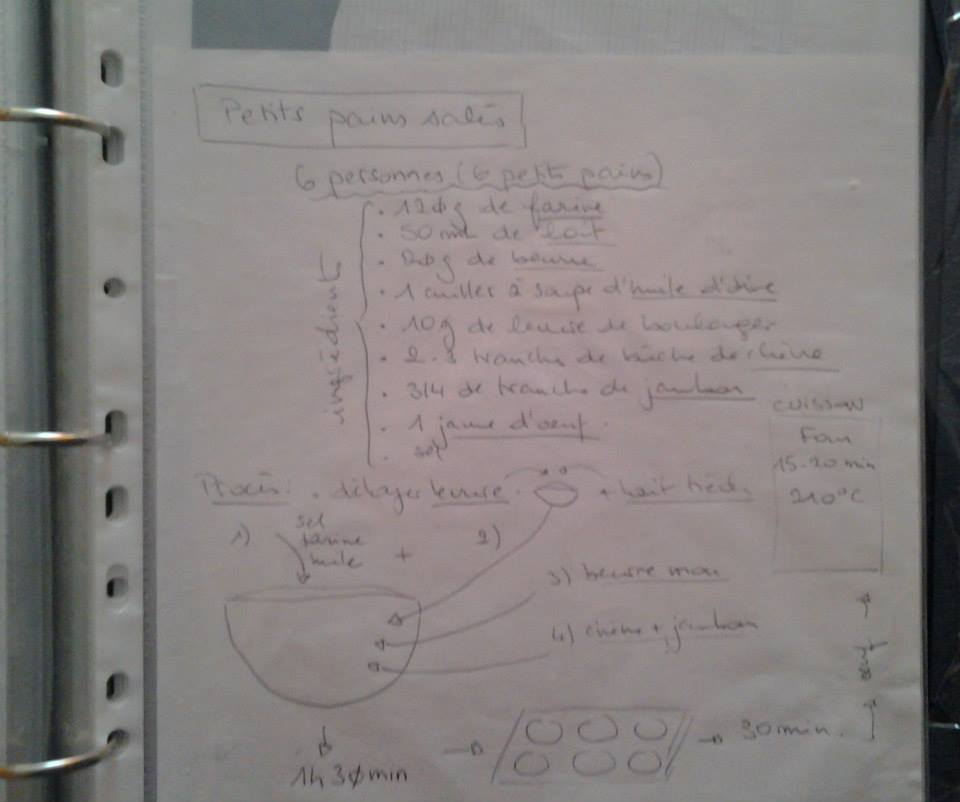 Petits pains salés
6 personnes (6 petits pains)
ingrédients
. 120g de farine
. 50 ml de lait
. 20g de beurre
. 1 cuiller à soupe d'huile d'olive
. 10g de levure de boulanger
. 2-3 tranches de bûche de chèvre
. 3/4 de tranche de jambon
. 1 jaune d'oeuf.
. sel
CUISSON
Four
15-20 min
210°C
Procès. . délayer levure + lait tiède
1) sel
farine
huile
+ 2)
3) beurre mou
4) chèvre + jambon
1h30min
30min.